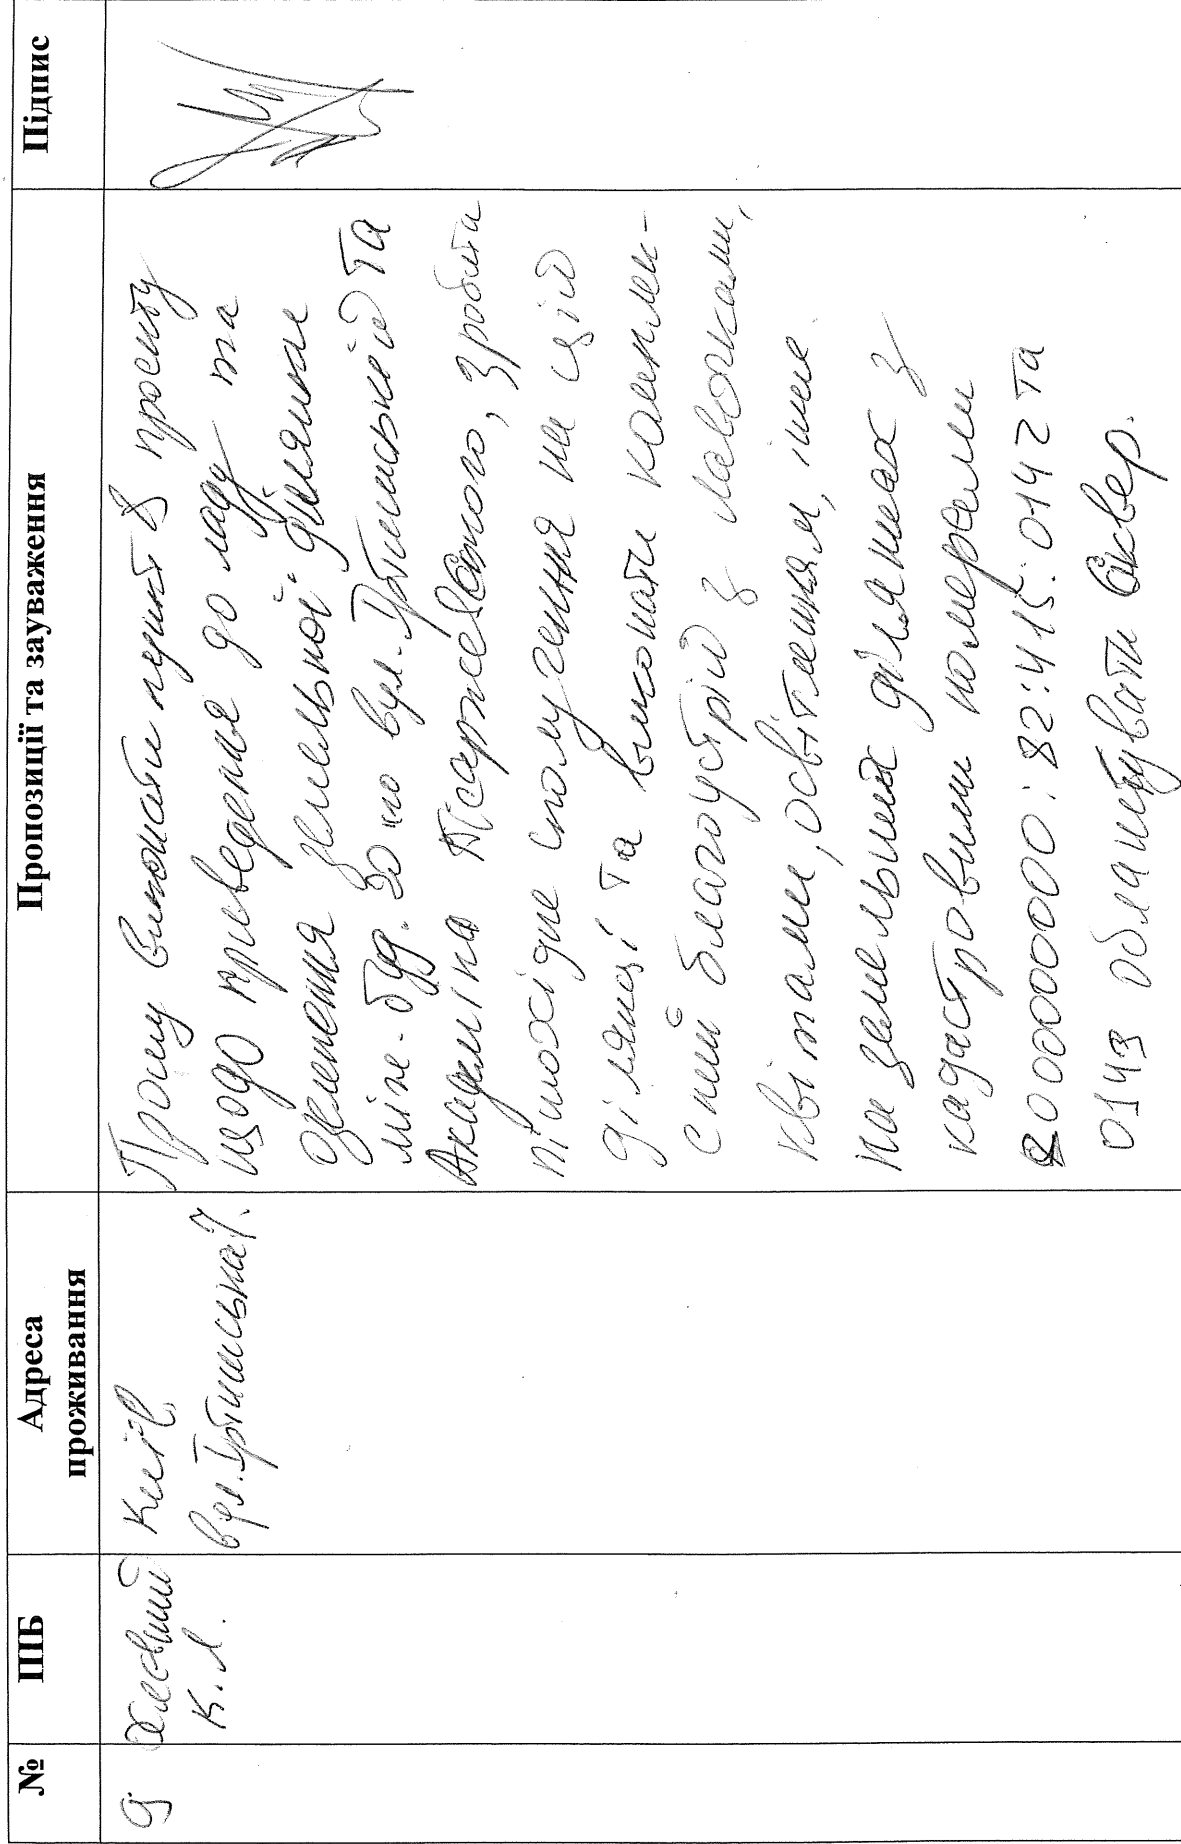 № ПІБ Адреса проживання Пропозиції та зауваження Підпис
9
К.Л.
Київ,
вул. Ірпінська 7.
Прошу виконати пункт 8 проситу
щодо приведення до ладу та
озеленення земельної ділянки
між буд. 30 по вул. Ірпінській та
Академіка Кржижановського, зробити
пішохідне сполучення на цій
ділянці та виконати комплек-
сний благоустрій з лавочками,
квітами, освітленням, інше.
На земельних ділянках з
кадастровими номерами
8000000000:82:415:0142 та
0143 облаштувати сквер.